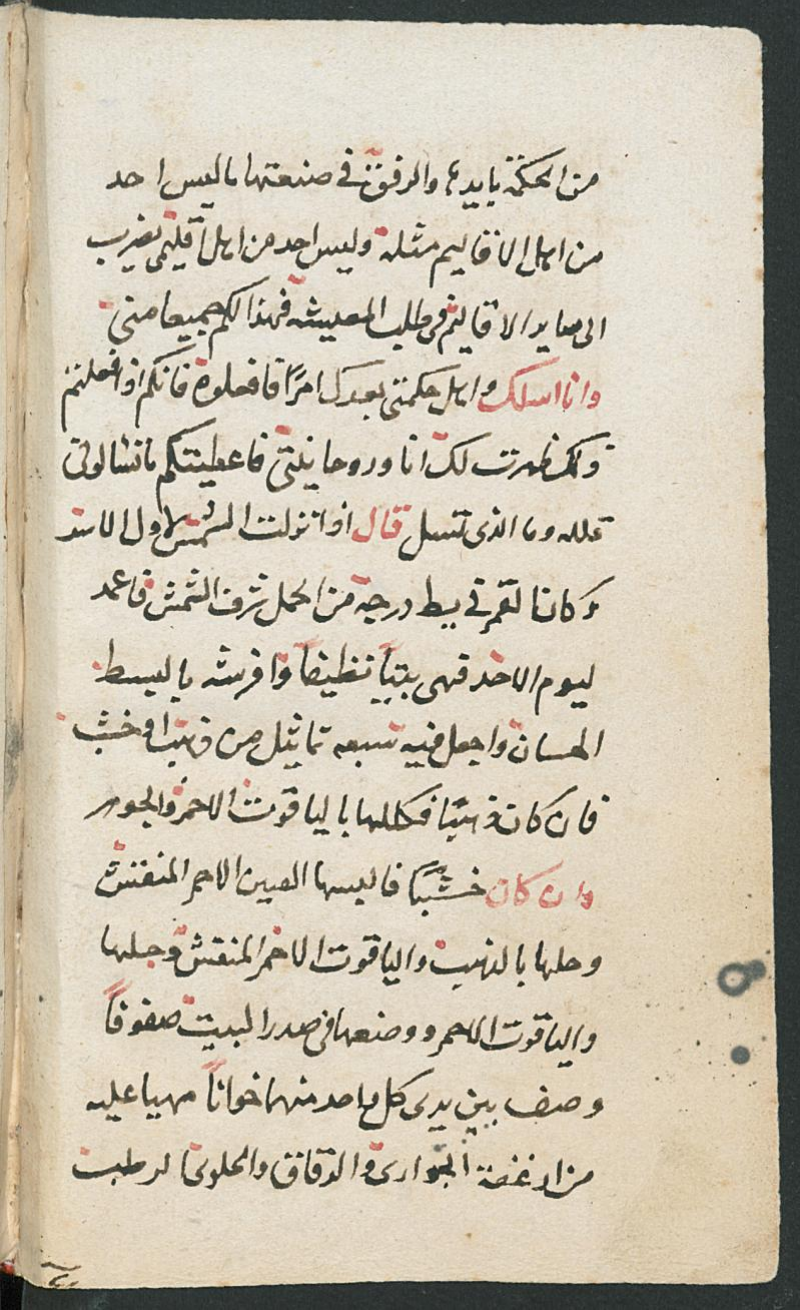 من الحكمة بايديها والرفق في صنعتها ما ليس احد
من اهل الاقاليم مثله وليس احد من اهل اقليمى يضرب
الى ساير الاقاليم في طلب المعيشه فهذا لكم جميعا منى
وانا اسلك واهل حكمتى بعدك امرًا فافعلوه فانكم اذا فعلتم
ذلك ظهرت لك انا وروحانيتى فاعطيتكم ما تشالونى
وما الذى تسل قال اذا نزلت الشمس لاول الاسد
وكان القمر في يط درجة من الحمل شرف الشمس فاعمد
ليوم الاحد فهى بيتاً نظيفاً وافرشه بالبسط
الحسان واجعل فيه سبعه تماثيل من ذهب او خشب
فان كانت ذهبًا فكللها بالياقوت الاحمر والجوهر
وان كان خشبًا فالبسها الاحمر المنقش
وحلها بالذهب والياقوت الاحمر المنقش وجلها
والياقوت الاحمر وصنعها في صدر البيت صفوفاً
وصف بين يدى كل واحد منها خواناً مهيا عليه
من ارغفة الجوارى والرقاق والحلوى الرطبت